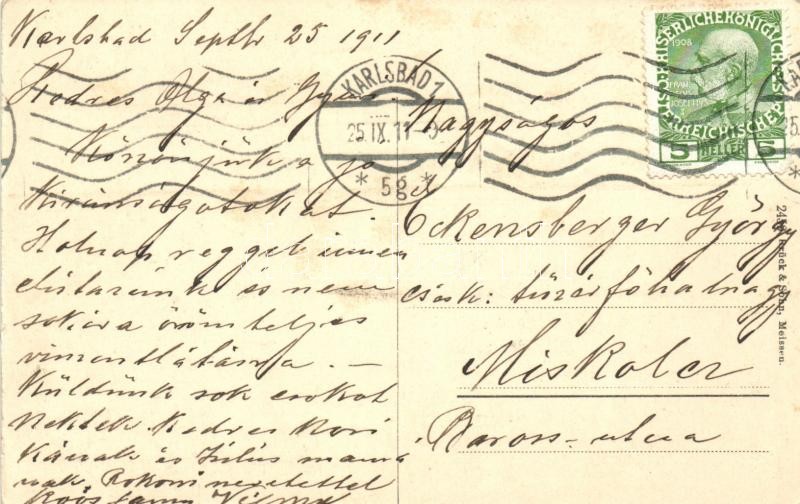 Karlsbad Septbr 25 1911
Kedves Olga és Gyuri
Köszönjük a jó
kivánságotokat.
Holnap reggel innen
elutazunk és nem
sokára örömteljes
viszontlátásra. —
Küldünk sok csókot
Nektek. Kedves
és Julus
Rokoni szeretettel
Vilma
KARLSBAD 1
25.IX.11
* 5g *
1908
KAISERLICHEKÖNIGLICHE
ÖSTERREICHISCHEPOST
5 HELLER 5
Nagyságos
Ockensberger György
csász: tüzérfőhadnagy
Miskolcz
Baross-utcza
Brück & Sohn, Meissen.